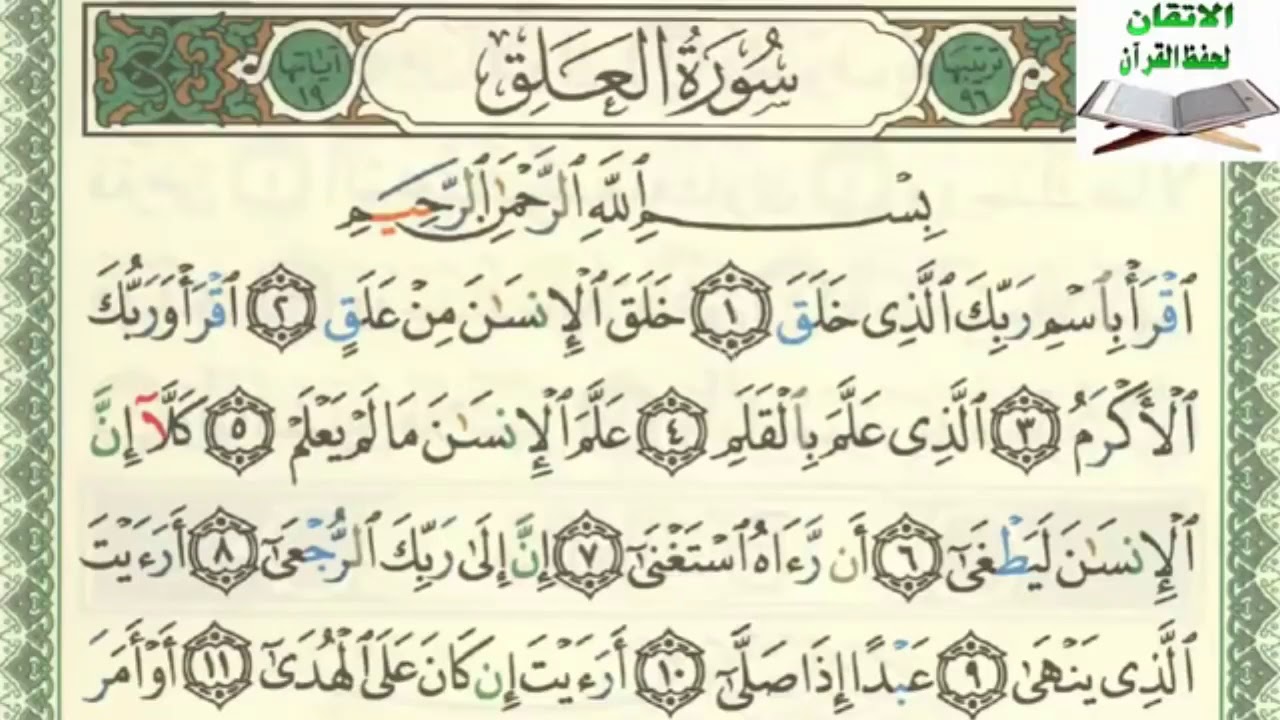 الاتقان
لحفظ القرآن
ترتيبها
٩٦
سُورَةُ الْعَلَقِ
آياتها
١٩
بِسْمِ ٱللَّهِ ٱلرَّحْمَٰنِ ٱلرَّحِيمِ
ٱقْرَأْ بِٱسْمِ رَبِّكَ ٱلَّذِى خَلَقَ ١ خَلَقَ ٱلْإِنسَٰنَ مِنْ عَلَقٍ ٢ ٱقْرَأْ وَرَبُّكَ
ٱلْأَكْرَمُ ٣ ٱلَّذِى عَلَّمَ بِٱلْقَلَمِ ٤ عَلَّمَ ٱلْإِنسَٰنَ مَا لَمْ يَعْلَمْ ٥ كَلَّآ إِنَّ
ٱلْإِنسَٰنَ لَيَطْغَىٰٓ ٦ أَن رَّءَاهُ ٱسْتَغْنَىٰٓ ٧ إِنَّ إِلَىٰ رَبِّكَ ٱلرُّجْعَىٰٓ ٨ أَرَءَيْتَ
ٱلَّذِى يَنْهَىٰ ٩ عَبْدًا إِذَا صَلَّىٰٓ ١٠ أَرَءَيْتَ إِن كَانَ عَلَى ٱلْهُدَىٰٓ ١١ أَوْ أَمَرَ